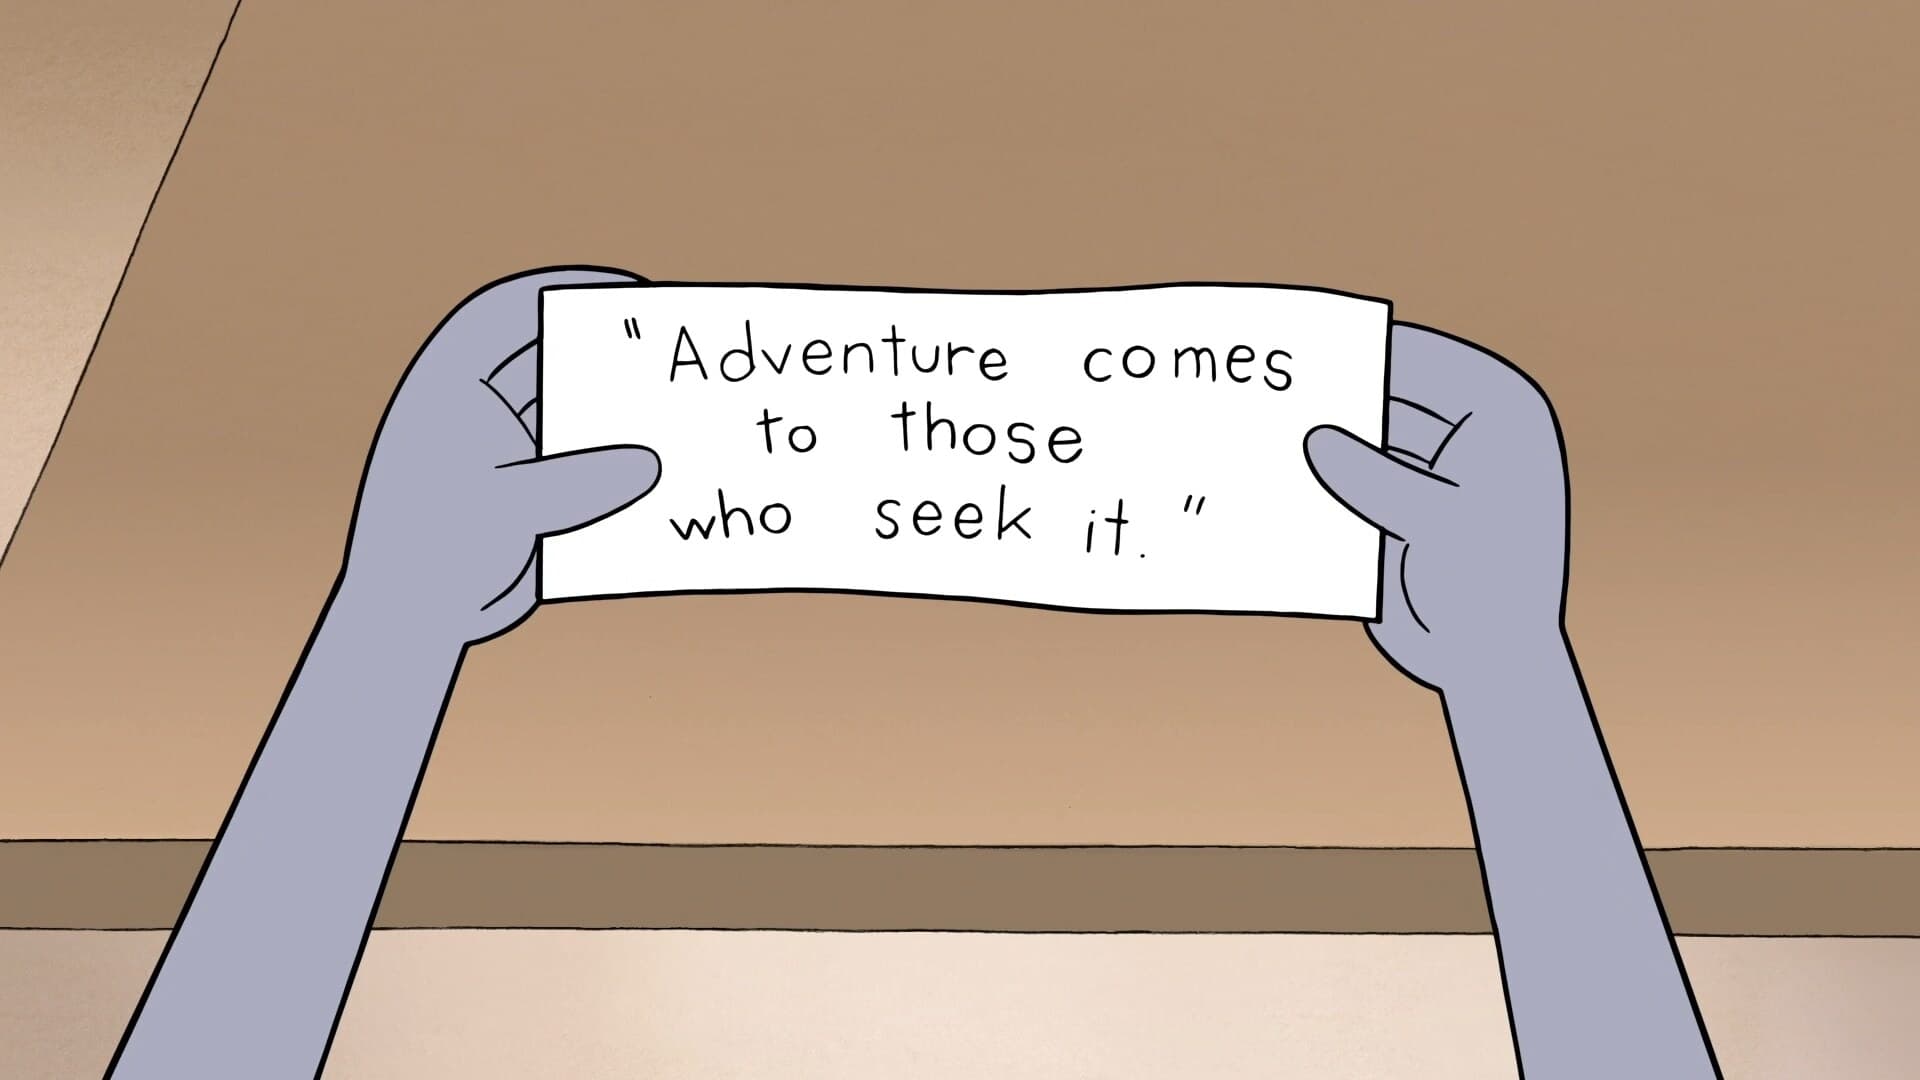 "Adventure comes
to those
who seek it."